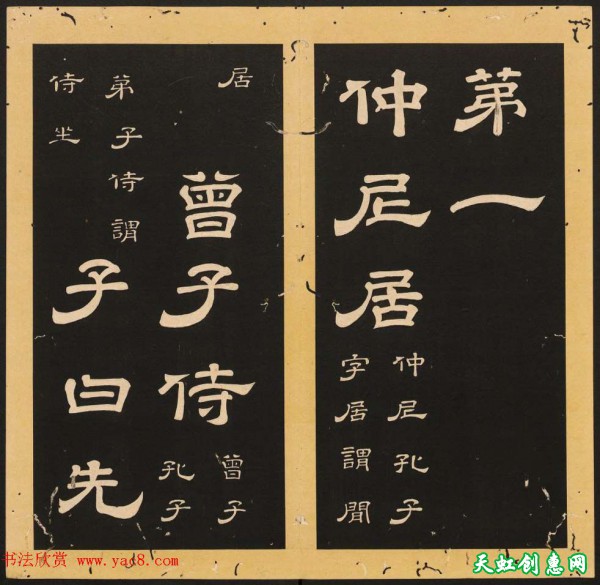 苐一
仲尼居
仲尼孔子
字居謂閒
居
曾子侍
曾子
孔子
弟子侍謂
侍坐
子曰先
书法欣赏 www.yac8.com
天虹创惠网